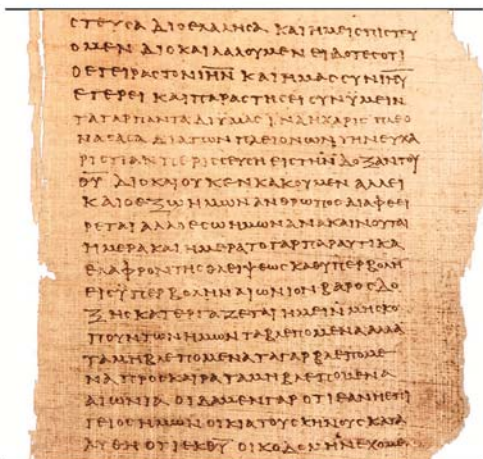 ϹΤΕΥϹΑ ΔΙΟ ΕΛΑΛΗϹΑ ΚΑΙ ΗΜΕΙϹ ΠΙϹΤΕΥ
ΟΜΕΝ ΔΙΟ ΚΑΙ ΛΑΛΟΥΜΕΝ ΕΙΔΟΤΕϹ ΟΤΙ
Ο ΕΓΕΙΡΑϹ ΤΟΝ Ι̅Η̅Ν̅ ΚΑΙ ΗΜΑϹ ϹΥΝ Ι̅Η̅Υ̅
ΕΓΕΡΕΙ ΚΑΙ ΠΑΡΑϹΤΗϹΕΙ ϹΥΝ ΫΜΕΙΝ
ΤΑ ΓΑΡ ΠΑΝΤΑ ΔΙ ΥΜΑϹ ΙΝΑ Η ΧΑΡΙϹ ΠΛΕΟ
ΝΑϹΑϹΑ ΔΙΑ ΤΩΝ ΠΛΕΙΟΝΩΝ ΤΗΝ ΕΥΧΑ
ΡΙϹΤΙΑΝ ΠΕΡΙϹϹΕΥϹΗ ΕΙϹ ΤΗΝ ΔΟΞΑΝ ΤΟΥ
Θ̅Υ̅ ΔΙΟ ΚΑΙ ΟΥΚ ΕΝΚΑΚΟΥΜΕΝ ΑΛΛ ΕΙ
ΚΑΙ Ο ΕΞΩ ΗΜΩΝ ΑΝΘΡΩΠΟϹ ΔΙΑΦΘΕΙ
ΡΕΤΑΙ ΑΛΛ Ο ΕϹΩ ΗΜΩΝ ΑΝΑΚΑΙΝΟΥΤΑΙ
ΗΜΕΡΑ ΚΑΙ ΗΜΕΡΑ ΤΟ ΓΑΡ ΠΑΡΑΥΤΙΚΑ
ΕΛΑΦΡΟΝ ΤΗϹ ΘΛΕΙΨΕΩϹ ΚΑΘ ΥΠΕΡΒΟΛΗ
ΕΙϹ ΫΠΕΡΒΟΛΗΝ ΑΙΩΝΙΟΝ ΒΑΡΟϹ ΔΟ
ΞΗϹ ΚΑΤΕΡΓΑΖΕΤΑΙ ΗΜΕΙΝ ΜΗ ϹΚΟ
ΠΟΥΝΤΩΝ ΗΜΩΝ ΤΑ ΒΛΕΠΟΜΕΝΑ ΑΛΛΑ
ΤΑ ΜΗ ΒΛΕΠΟΜΕΝΑ ΤΑ ΓΑΡ ΒΛΕΠΟΜΕ
ΝΑ ΠΡΟϹΚΑΙΡΑ ΤΑ ΜΗ ΒΛΕΠΟΜΕΝΑ
ΑΙΩΝΙΑ ΟΙΔΑΜΕΝ ΓΑΡ ΟΤΙ ΕΑΝ Η ΕΠΙ
ΓΕΙΟϹ ΗΜΩΝ ΟΙΚΙΑ ΤΟΥ ϹΚΗΝΟΥϹ ΚΑΤΑ
ΛΥΘΗ ΟΤΙ ΕΚ Θ̅Υ̅ ΟΙΚΟΔΟΜΗΝ ΕΧΟΜΕ